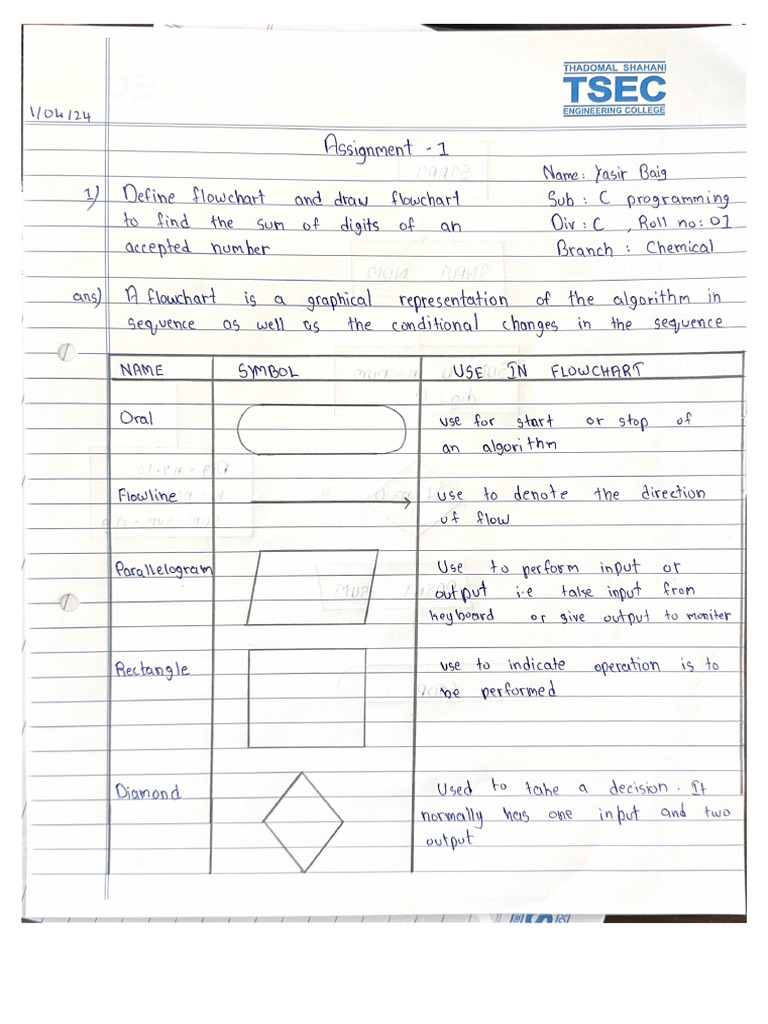 THADOMAL SHAHANI
TSEC
ENGINEERING COLLEGE
1/04/24
Assignment - 1
Name: Yasir Baig
1) Define flowchart and draw flowchart
Sub : C programming
to find the sum of digits of an
Div : C , Roll no: 01
accepted number
Branch : Chemical
ans) A flowchart is a graphical representation of the algorithm in
sequence as well as the conditional changes in the sequence
NAME SYMBOL USE IN FLOWCHART
Oral use for start or stop of
an algorithm
Flowline use to denote the direction
of flow
Parallelogram Use to perform input or
output i.e take input from
keyboard or give output to moniter
Rectangle use to indicate operation is to
be performed
Diamond Used to take a decision. It
normally has one input and two
output